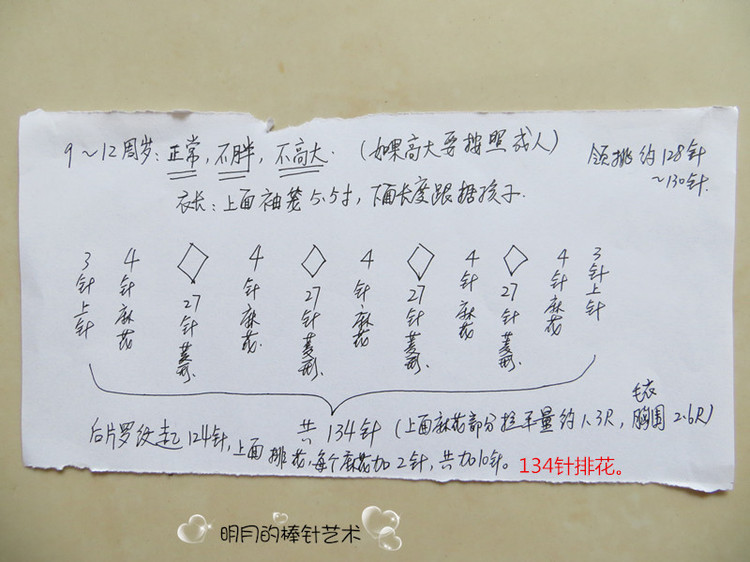 9～12周岁：正常，不胖，不高大.（如果高大要按照成人）
领挑约128针
～130针.
衣长：上面袖笼5.5寸，下面长度跟据孩子.
3针上针
4针麻花
27针菱形.
4针麻花.
27针菱形.
4针麻花
27针菱形.
4针麻花
27针菱形.
4针麻花
3针上针
后片罗纹起124针，上面排花，每个麻花加2针，共加10针。
共134针（上面麻花部分拉平量约1.3尺，毛衣胸围2.6尺）
134针排花。
明月的棒针艺术